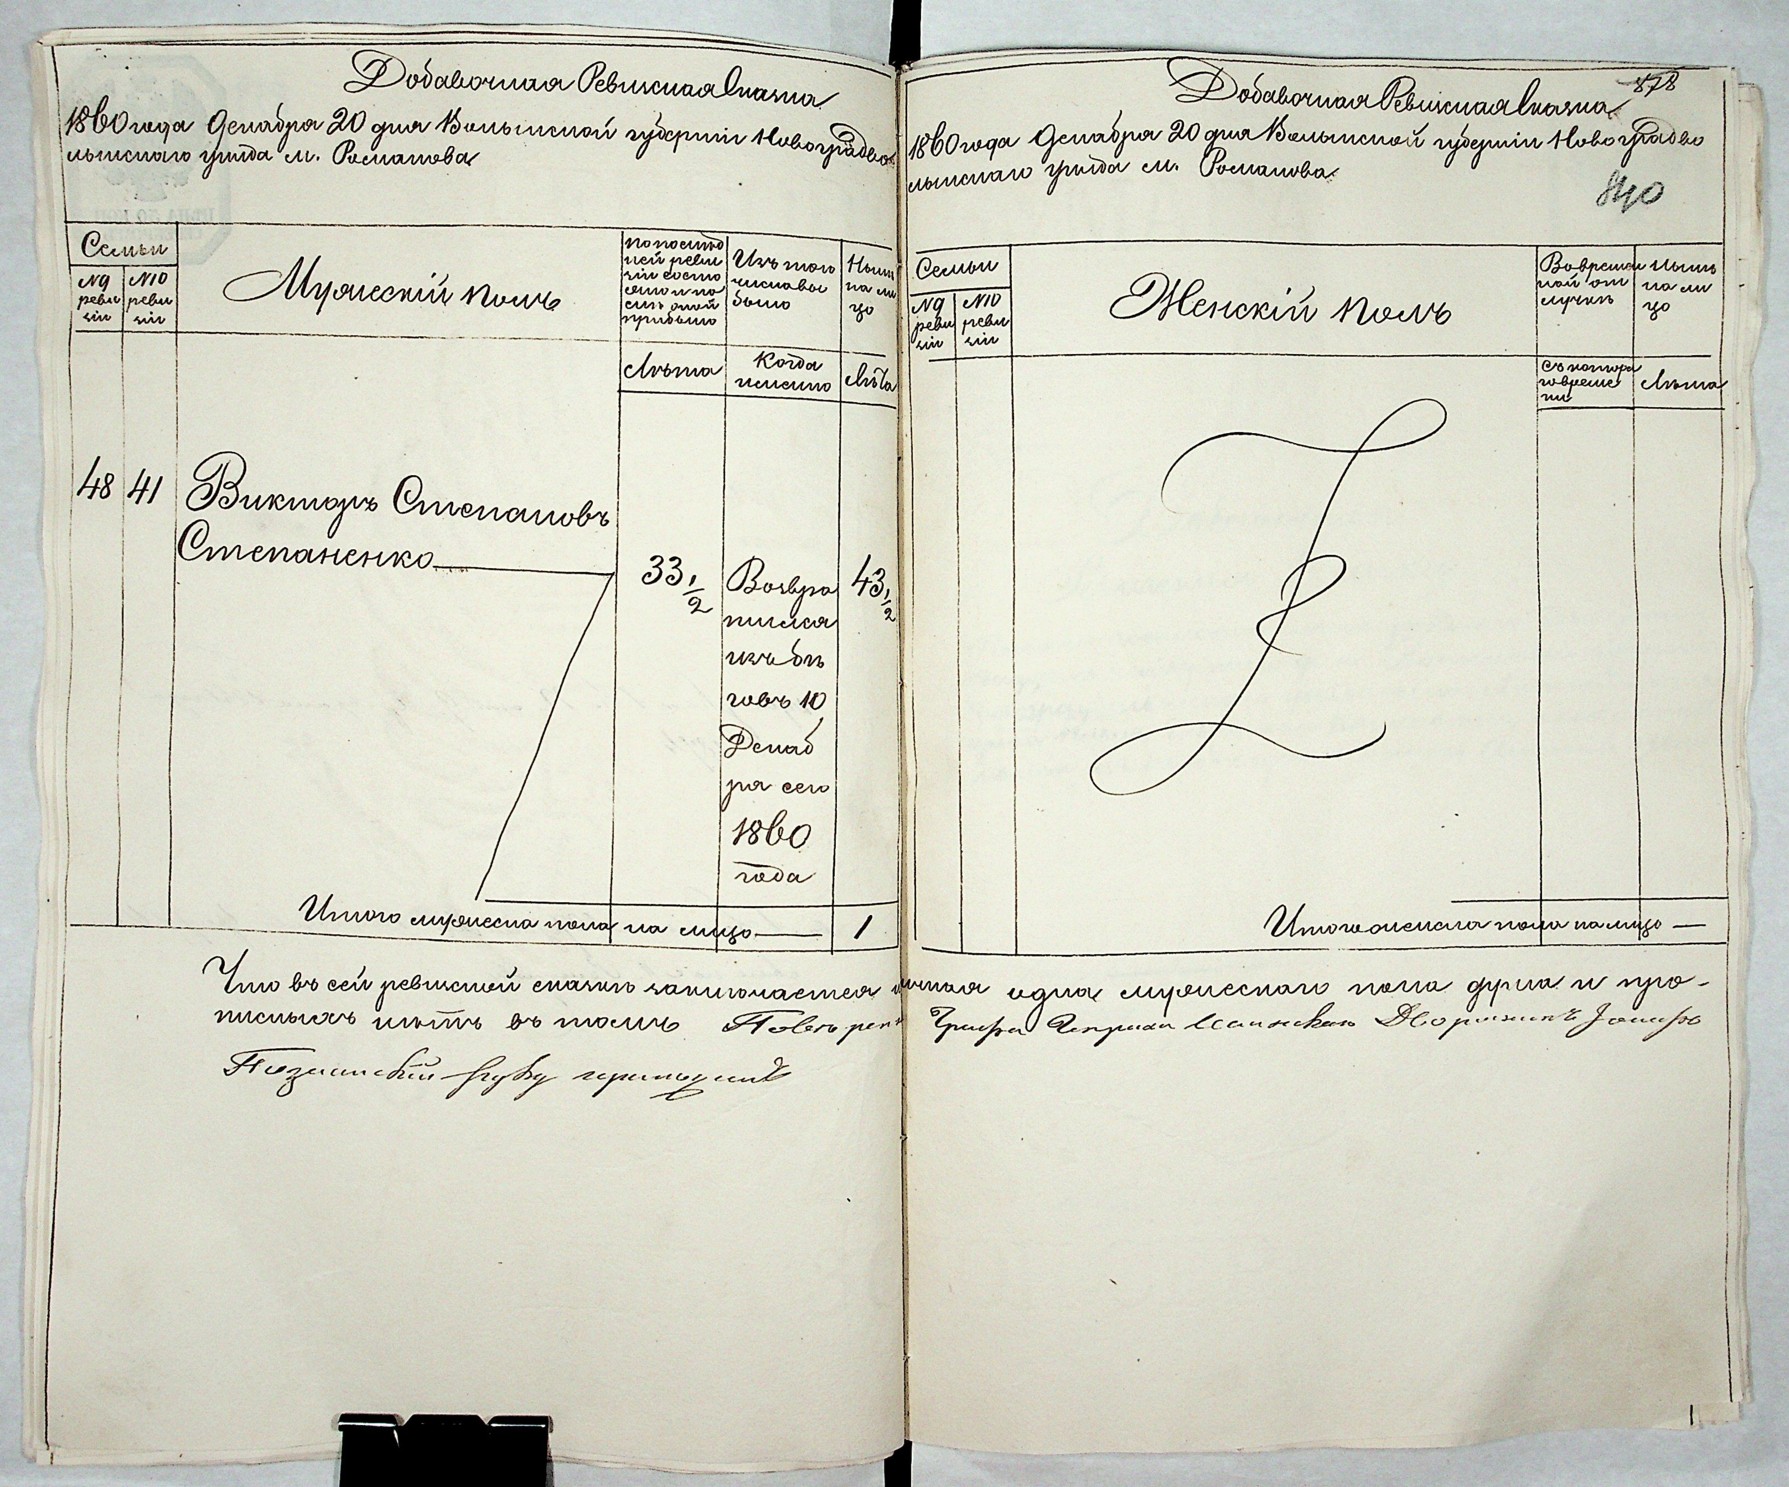 Добавочная Ревизская Сказка
1860 года Декабря 20 дня Волынской губерніи Новоградво
лынскаго уезда м. Романова
Семьи
№ 9 ревизіи
№ 10 ревизіи
Мужескій полъ
По послѣдней ревизіи состояло и после оной прибыло
Изъ того числа выбыло
Нынѣ на лицо
Лѣта
Когда именно
Лѣта
48 41 Викторъ Степановъ
Степаненко
33 1/2
Возвра
тился
изъ бѣ
говъ 10
Декаб
ря сего
1860
года
43 1/2
Итого мужеска пола на лицо — 1
Добавочная Ревизская Сказка
878
1860 года Декабря 20 дня Волынской губерніи Новоградво
лынскаго уезда м. Романова
840
Семьи
№ 9 ревизіи
№ 10 ревизіи
Женскій полъ
Во временной отлучкѣ
Нынѣ на лицо
Съ котораго времени
Лѣта
Итого женска пола на лицо —
Что въ сей ревизской сказкѣ заключается одна мужескаго пола душа и про-
писныхъ нѣтъ въ томъ Графа Дворянинъ
руку приложилъ